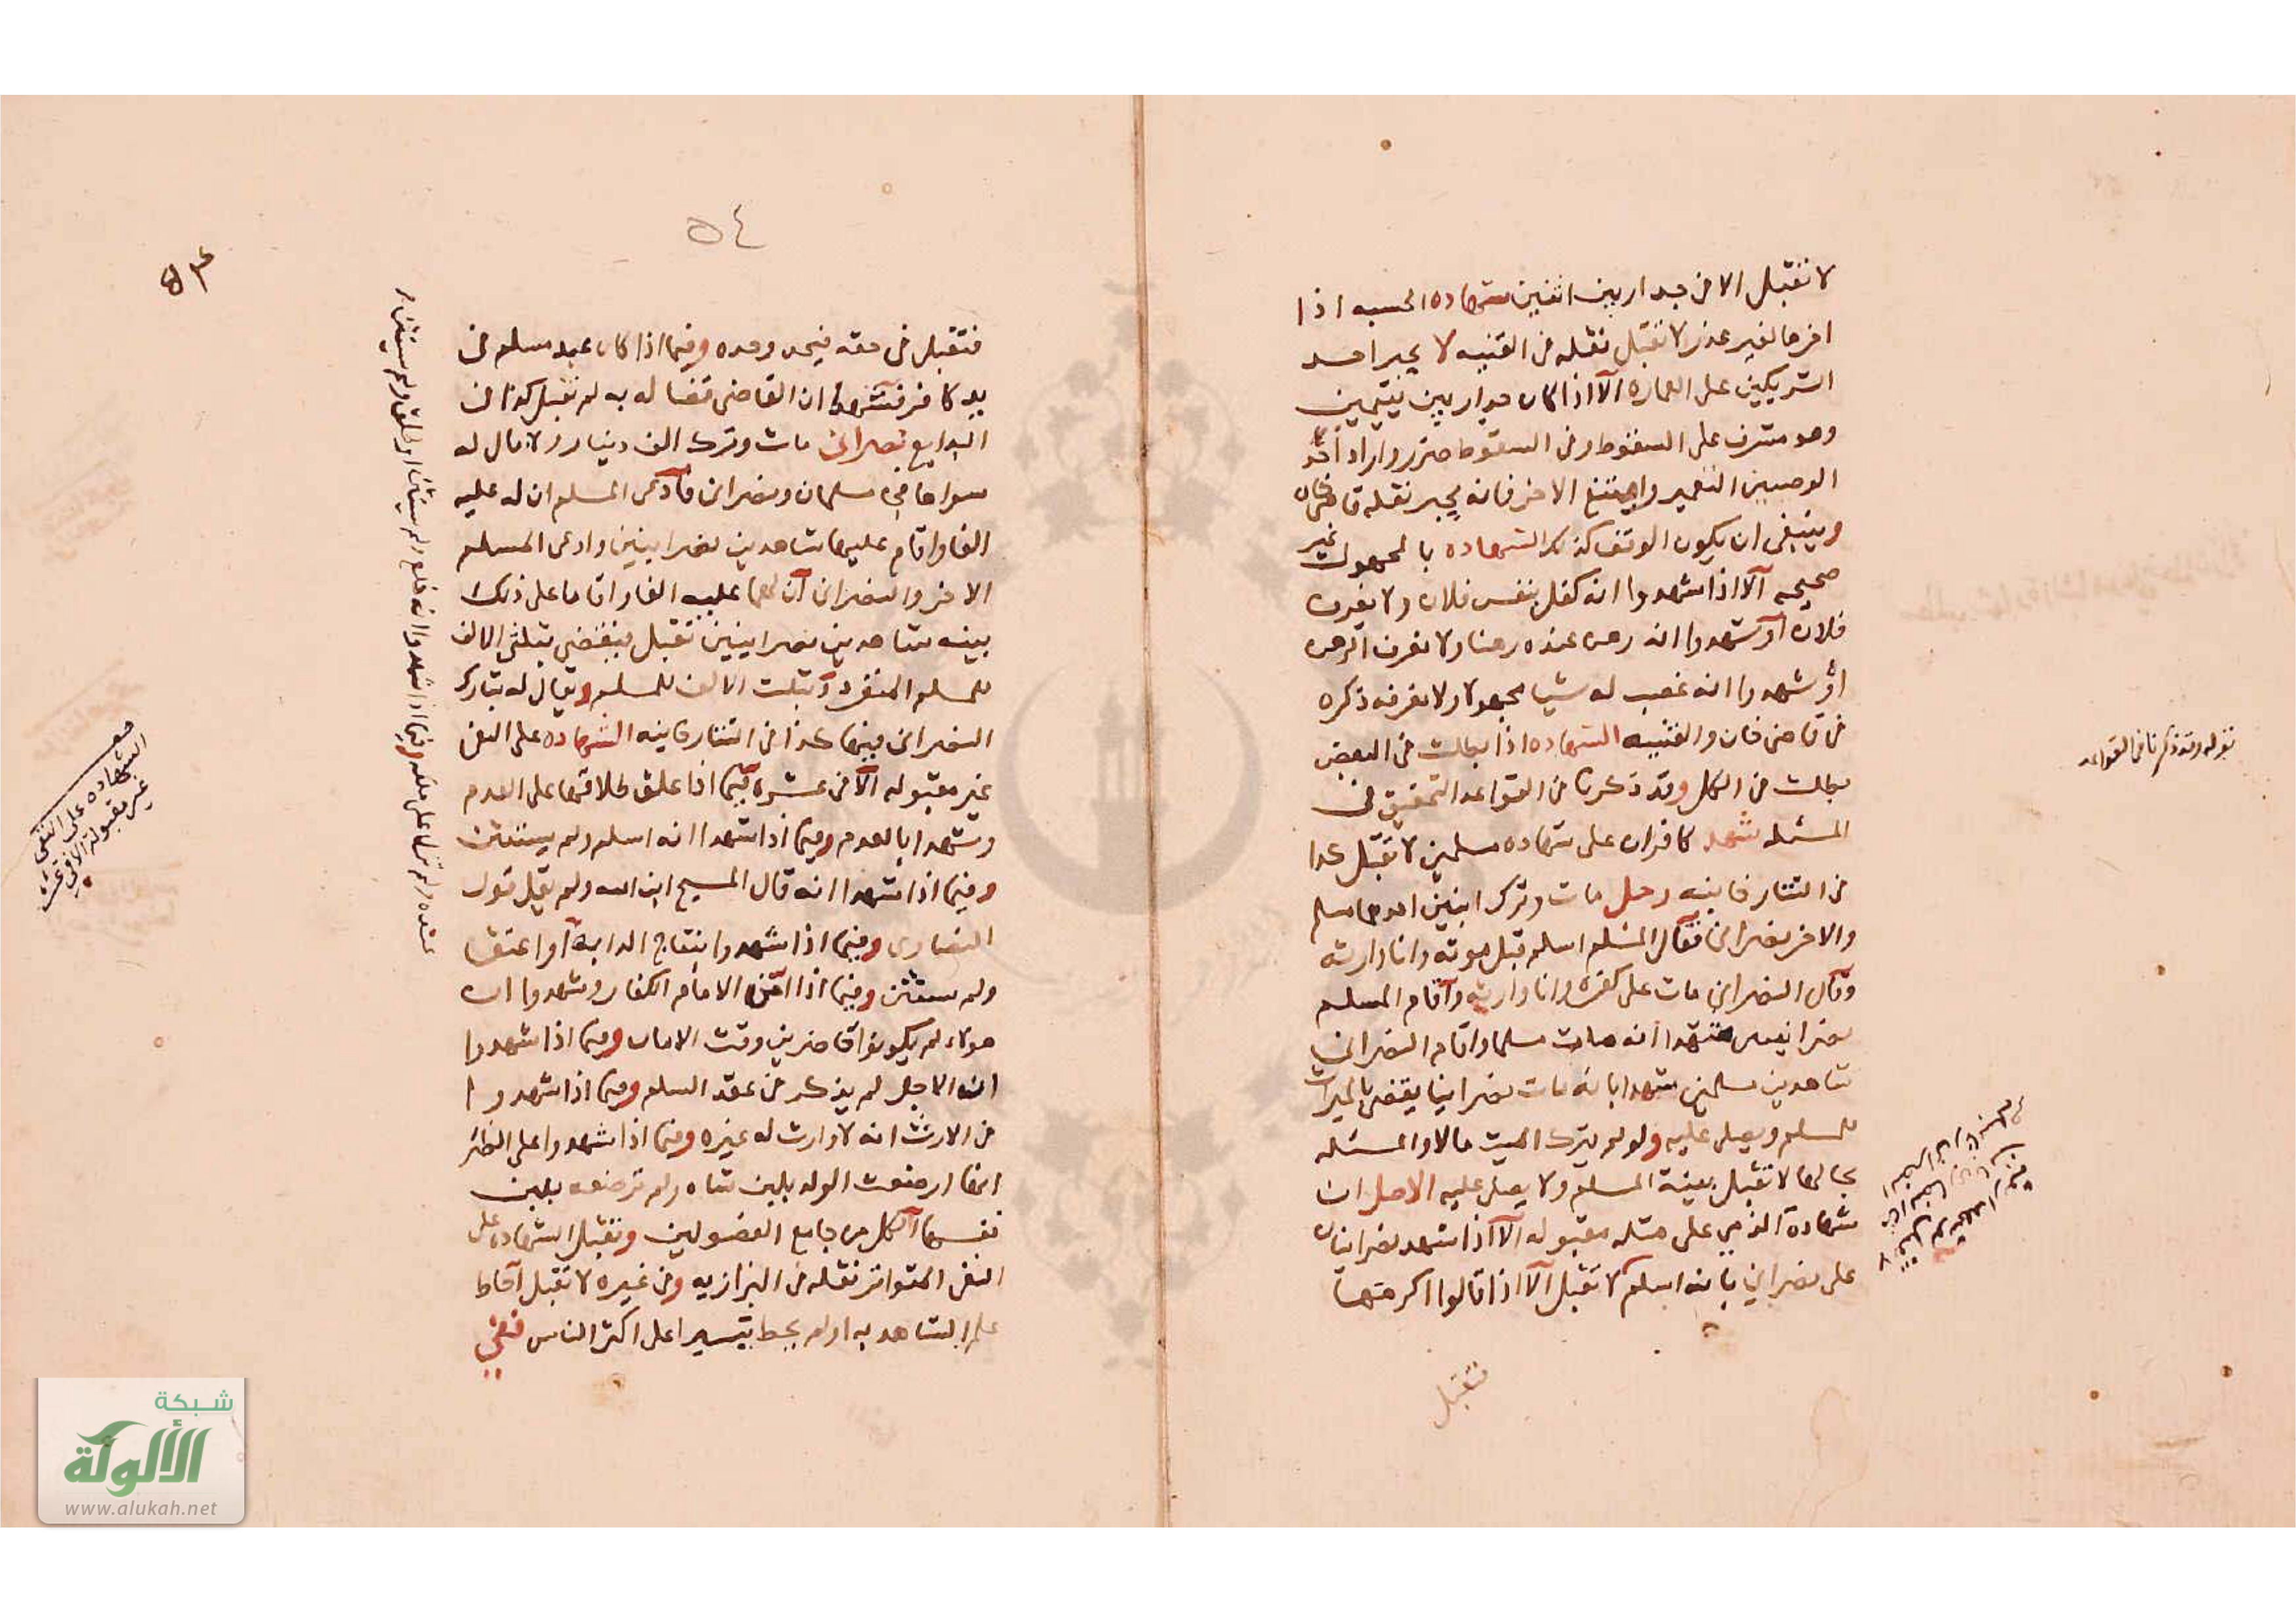 لا تقبل الا في جدار بين اثنين شهاده الحسبه اذا
اخرها لغير عذر لا تقبل نقله في القنيه لا يجبر احد
الشريكين على العماره الا اذا كان جدار بين يتيمين
وهو مشرف على السقوط وفي السقوط ضرر واراد احد
الوصيين التعمير وامتنع الاخر فانه يجبر نقله قاضي خان
وينبغي ان يكون الوقف كذلك الشهاده بالمجهول غير
صحيحه الا اذا شهدوا انه كفل بنفس فلان ولا نعرف
فلان او شهدوا انه رهن عنده رهنا ولا نعرف الرهن
او شهدوا انه غصب له شيا مجهولا ولا نعرفه ذكره
في قاضي خان والقنيه الشهاده اذا بطلت في البعض
بطلت في الكل وقد ذكرنا في القواعد التحقيق في
المسئله شهد كافران على شهاده مسلمين لا تقبل كذا
في التتارخانيه رجل مات وترك ابنين احدهما مسلم
والاخر نصراني فقال المسلم اسلم قبل موته وانا وارثه
وقال النصراني مات على كفره وانا وارثه واقام المسلم
نصرانيين شهدا انه مات مسلما واقام النصراني
شاهدين مسلمين شهدا بانه مات نصرانيا يقضي بالميراث
للمسلم ويصلى عليه ولو لم يترك الميت مالا والمسئله
بحالها لا تقبل بينة المسلم ولا يصلى عليه الاصل ان
شهادة الذمي على مثله مقبوله الا اذا شهد نصرانيان
على نصراني بانه اسلم لا تقبل الا اذا قالوا اكرمتها
تقبل
قوله وقد ذكرنا في القواعد
٥٤
٥٣
فتقبل في حقه فيحد وحده وفيما اذا كان عبد مسلم في
يد كافر فشهدا ان القاضي قضا له به لم تقبل كذا في
البدايع نصراني مات وترك الف دينار ولا مال له
سواها فجا مسلمان ونصراني فادعى المسلم ان له عليه
الفا واقام عليها شاهدين نصرانيين وادعى المسلم
الاخر والنصراني ان لهما عليه الفا واقاما على ذلك
بينه شاهدين نصرانيين تقبل فيقضي بثلثي الالف
للمسلم المنفرد وبثلث الالف للمسلم ويقال له شارك
النصراني فيها كذا في التتارخانيه الشهاده على النفي
غير مقبوله الا في عشره فيما اذا علق طلاقها على العدم
وشهدا بالعدم وفيما اذا شهدا انه اسلم ولم يستثن
وفيما اذا شهدا انه قال المسيح ابن الله ولم يقل قول
النصارى وفيما اذا شهدوا بنتاج الدابه او اعتقا
ولم يستثن وفيما اذا امن الامام الكفار وشهدوا ان
هولاء لم يكونوا حاضرين وقت الامان وفيما اذا شهدوا
ان الاجل لم يذكر في عقد السلم وفيما اذا شهدوا
في الارث انه لا وارث له غيره وفيما اذا شهدوا على الظئر
انها ارضعت الولد بلبن شاه ولم ترضعه بلبن
نفسها الكل من جامع الفصولين وتقبل الشهاده على
النفي المتواتر نقله في البزازيه وفي غيره لا تقبل احاط
علم الشاهد به او لم يحط تيسيرا على اكثر الناس ففي
الشهاده على النفي
غير مقبولة الا في عشره
شبكة
الألوكة
www.alukah.net